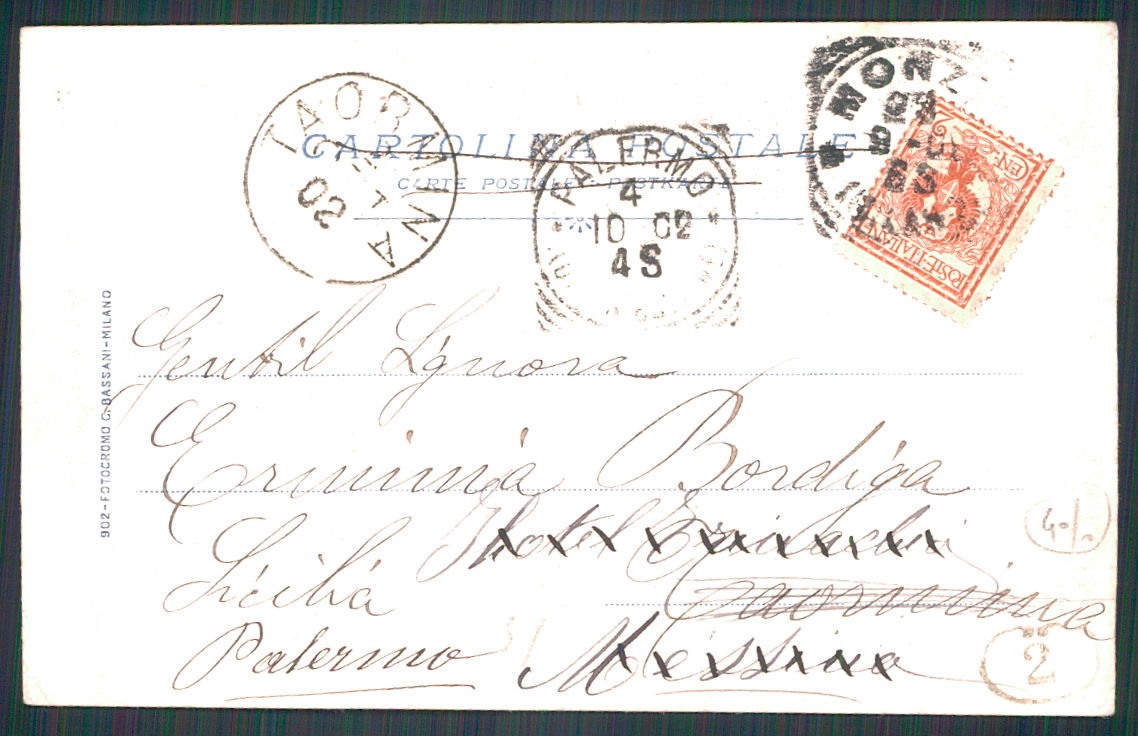 TAORMINA
02
CARTOLINA POSTALE
CARTE POSTALE - POSTKARTE
PALERMO
4
10 02
4S
MONZ
2
CEN.
POSTE·ITALIANE
902-FOTOCROMO C. BASSANI-MILANO
Gentil Signora
Erminia Bordiga
Hotel
Sicilia
Taormina
Palermo
Messina
4./.
2